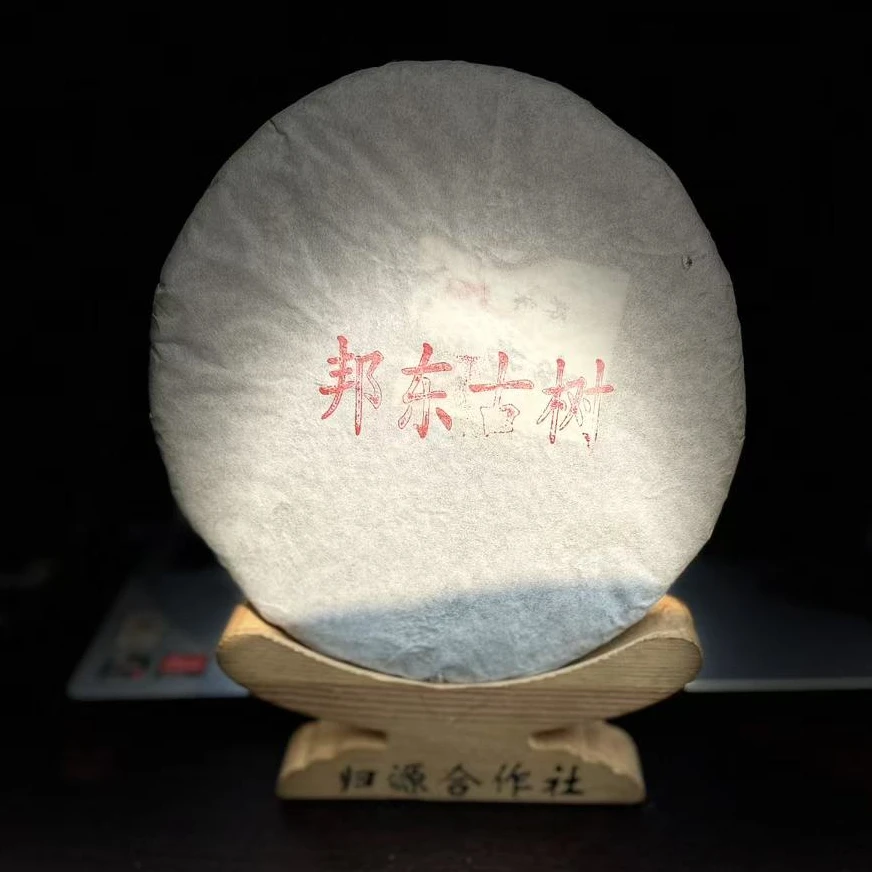 邦东古树
归源合作社